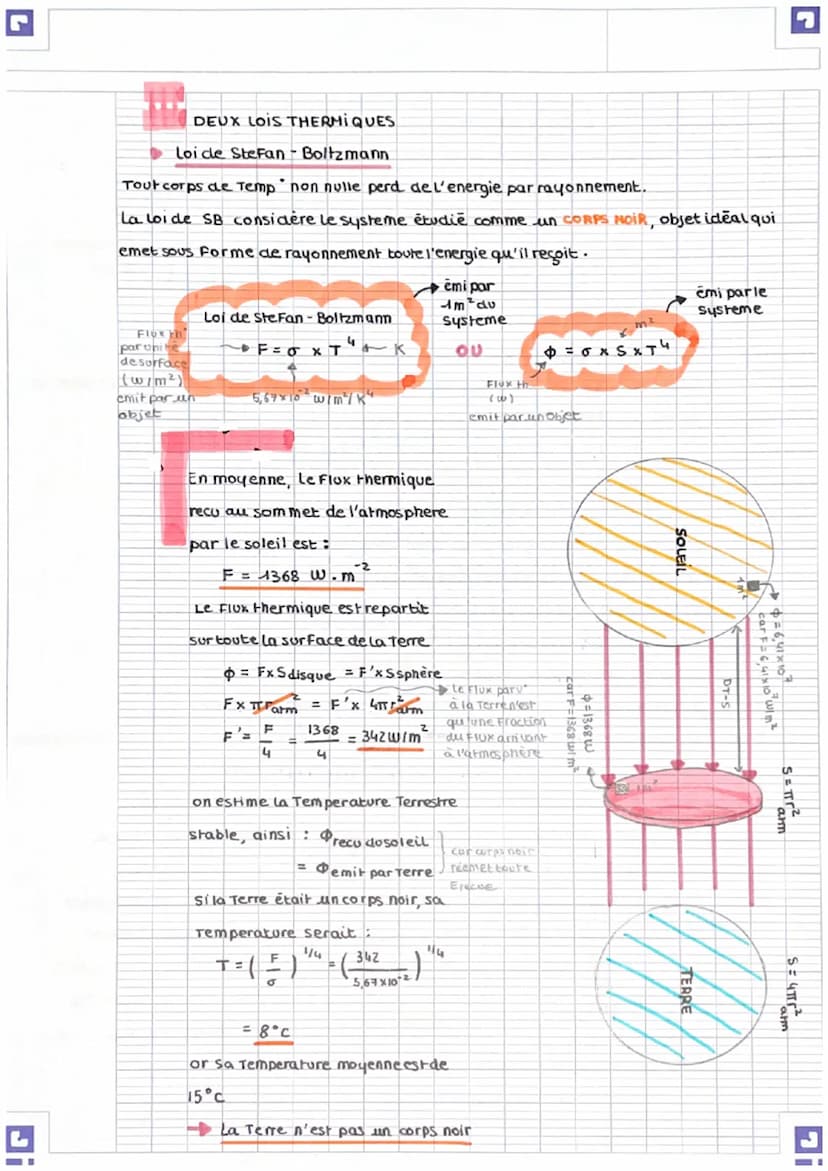 III DEUX LOIS THERMIQUES
Loi de Stefan - Boltzmann
Tout corps de Temp° non nulle perd de l'energie par rayonnement.
La loi de SB considère le systeme étudié comme un CORPS NOIR, objet idéal qui
emet sous forme de rayonnement toute l'energie qu'il reçoit.
Loi de Stefan - Boltzmann
F = σ x T⁴ K
5,67 x 10⁻² W/m²/K⁴
Flux th
par unité
de surface
(w/m²)
emit par un
objet
émi par
1m² du
systeme
OU
Φ = σ x S x T⁴
m²
émi par le
systeme
Flux th
(w)
emit par un objet
En moyenne, le flux thermique
recu au sommet de l'atmosphere
par le soleil est :
F = 1368 W.m⁻²
Le flux thermique est repartit
sur toute la surface de la Terre
Φ = F x Sdisque = F' x Ssphère
F x πr²arm = F' x 4πr²arm
F' = F/4 = 1368/4 = 342 W/m²
Le flux parv°
à la Terre n'est
qu'une fraction
du flux arrivant
à l'atmosphère
on estime la Temperature Terrestre
stable, ainsi : Φrecu du soleil
= Φemit par Terre
car corps noir
réemet toute
si la Terre était un corps noir, sa
Temperature serait :
T = (F/σ)^1/4 = (342/5,67x10⁻²)^1/4
= 8°c
or sa Temperature moyenne est de
15°c
→ La Terre n'est pas un corps noir
SOLEIL
1m²
Φ = 6,41x10⁷
car F = 6,41x10⁷ W/m²
DT-S
Φ = 1368 W
car F = 1368 W/m²
1m²
S = πr²arm
TERRE
S = 4πr²arm